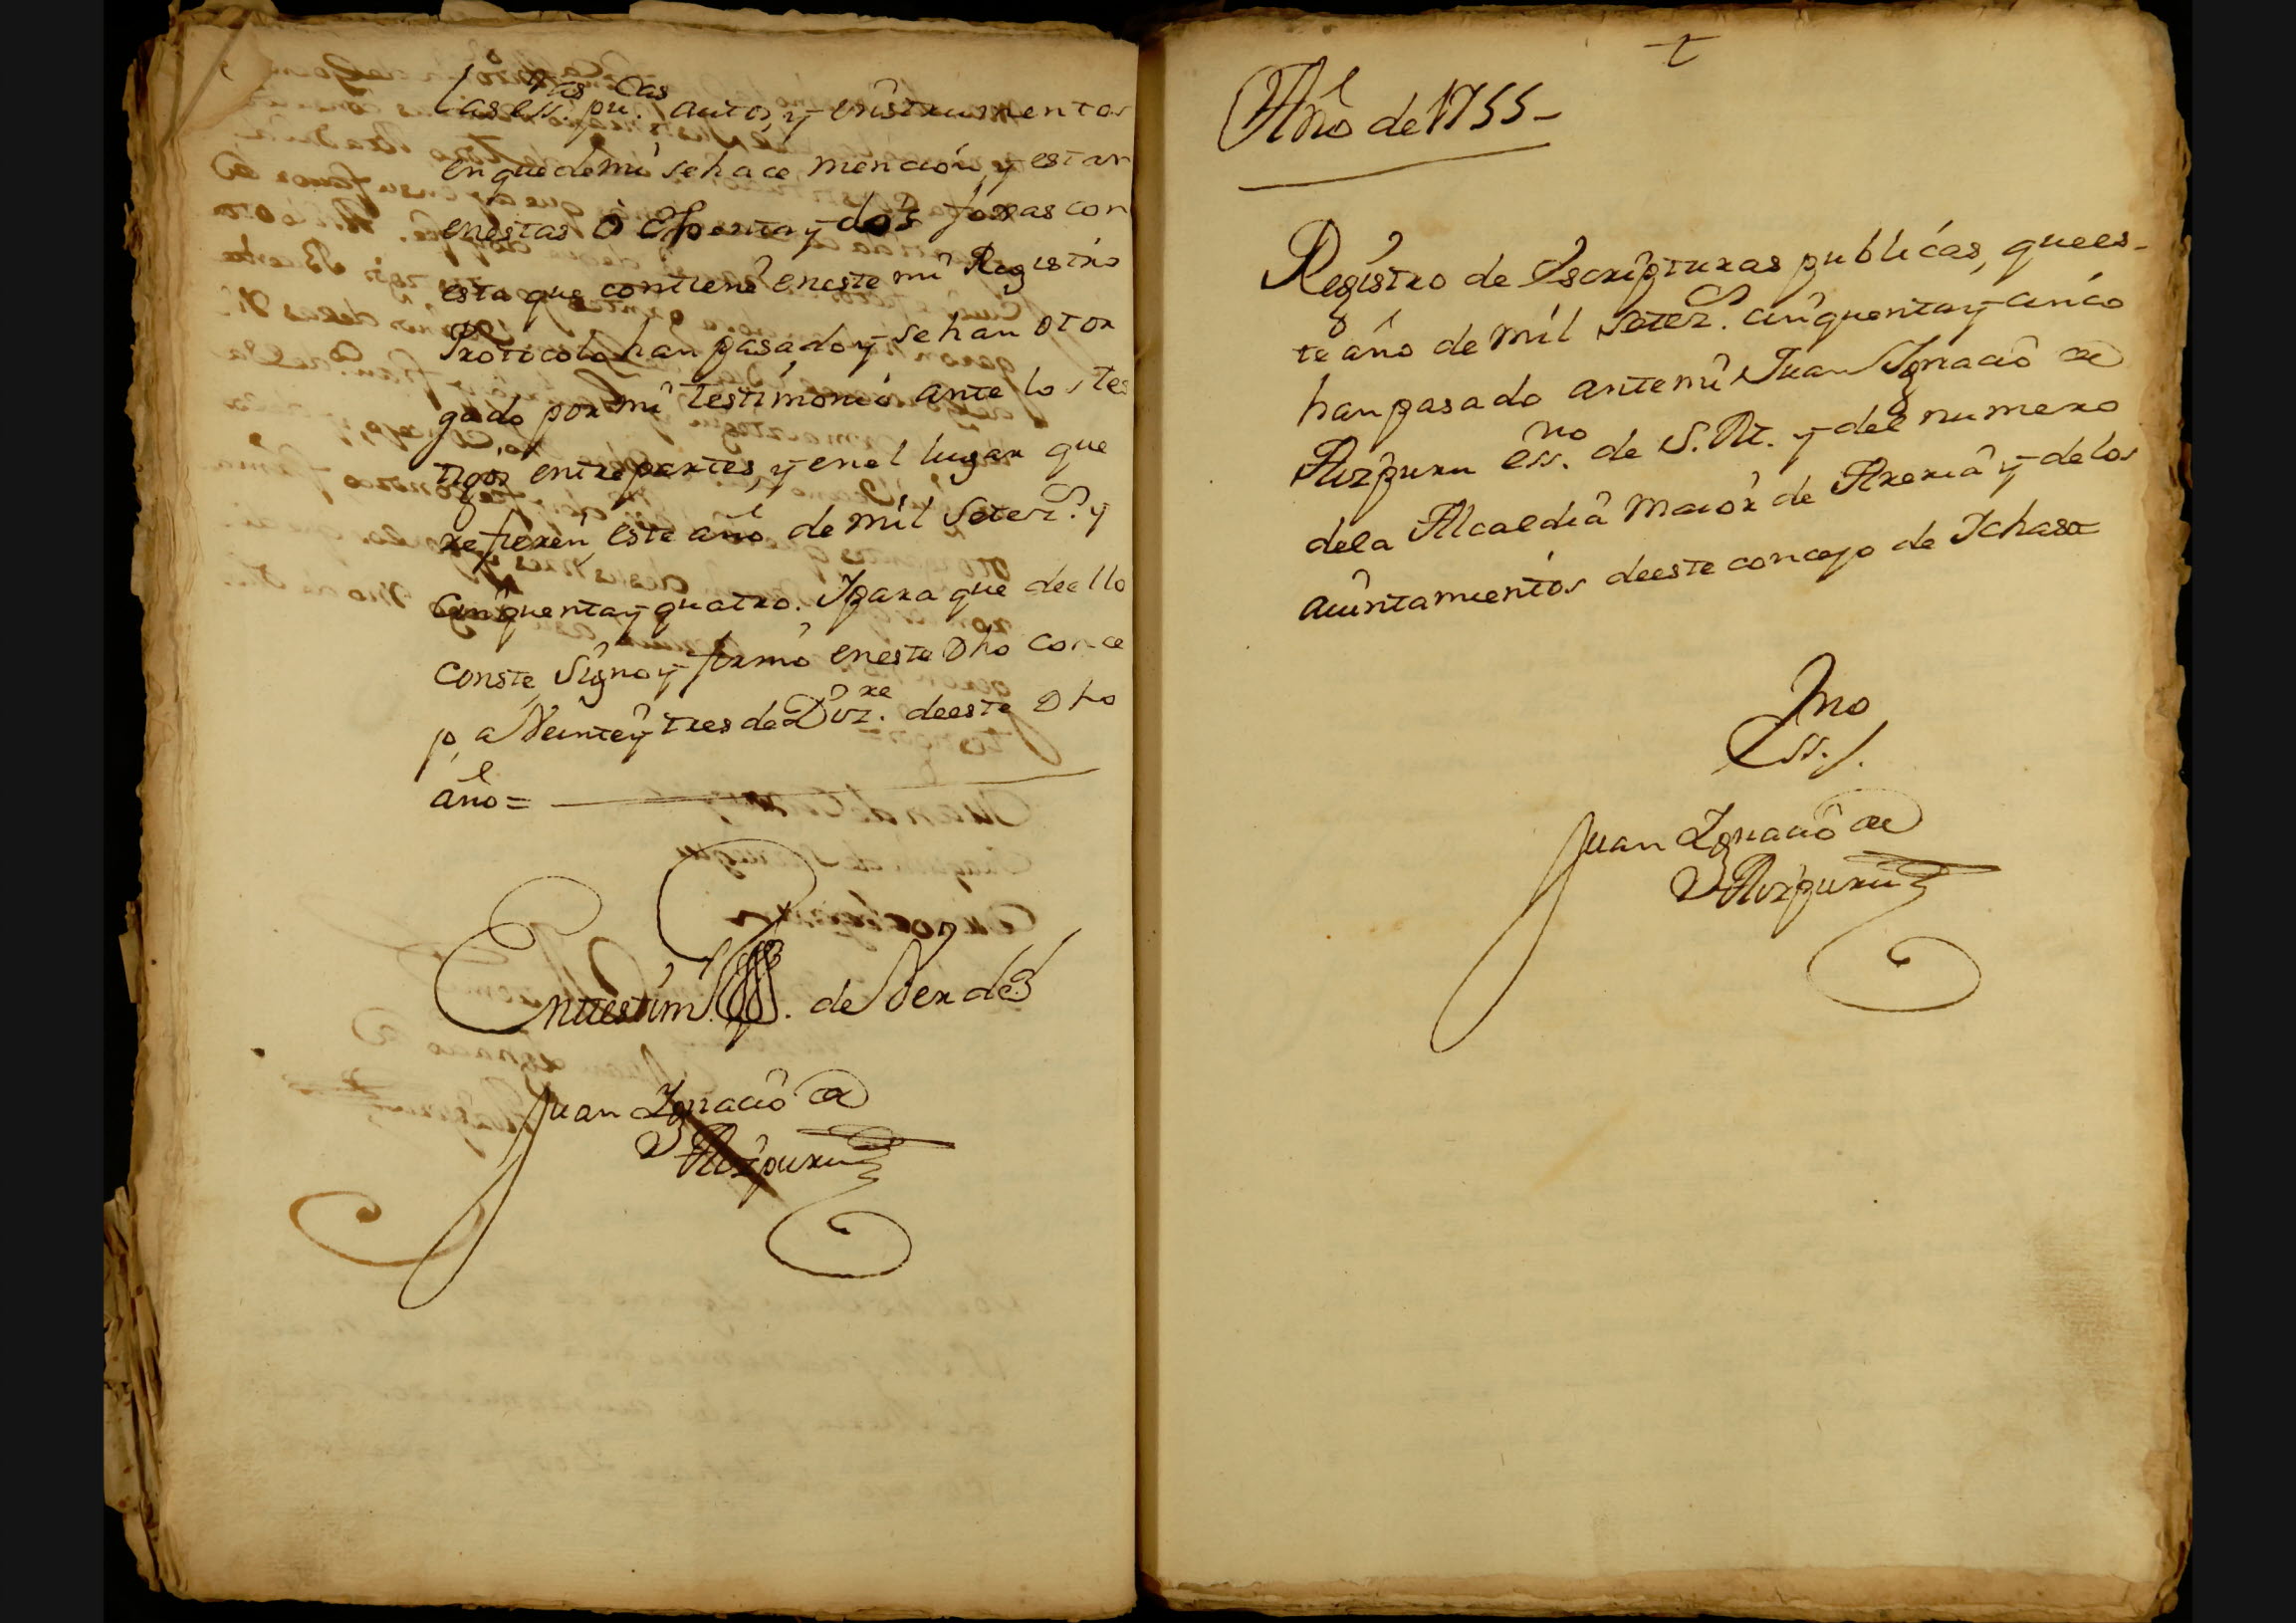 las ess.ras pu.cas autos, y enstrumentos
en que de mi se hace mencion, y estan
en estas ochenta y dos foxas con
esta que contiene en este mi Registro
Protocolo han pasado y se han otor
gado por mi testimonio ante los tes
tigos entre partes, y en el lugar que
refieren este año de mil setez.s y
cinquenta y quatro. Y para que de ello
conste, signo y firmo en este dho conce
jo, a Veinte y tres de Diz.re de este dho
año =
En testim.o de Verdad
Juan Ignacio de
Aizpuru
t
Año de 1755 -
Registro de Escripturas publicas, que es-
te año de mil setez.s cinquenta y cinco
han pasado ante mi Juan Ignacio de
Aizpuru ess.no de S. M. y del numero
de la Alcaldia maior de Areria y de los
aiuntamientos de este concejo de Ichaso
Juan Ignacio de
Aizpuru